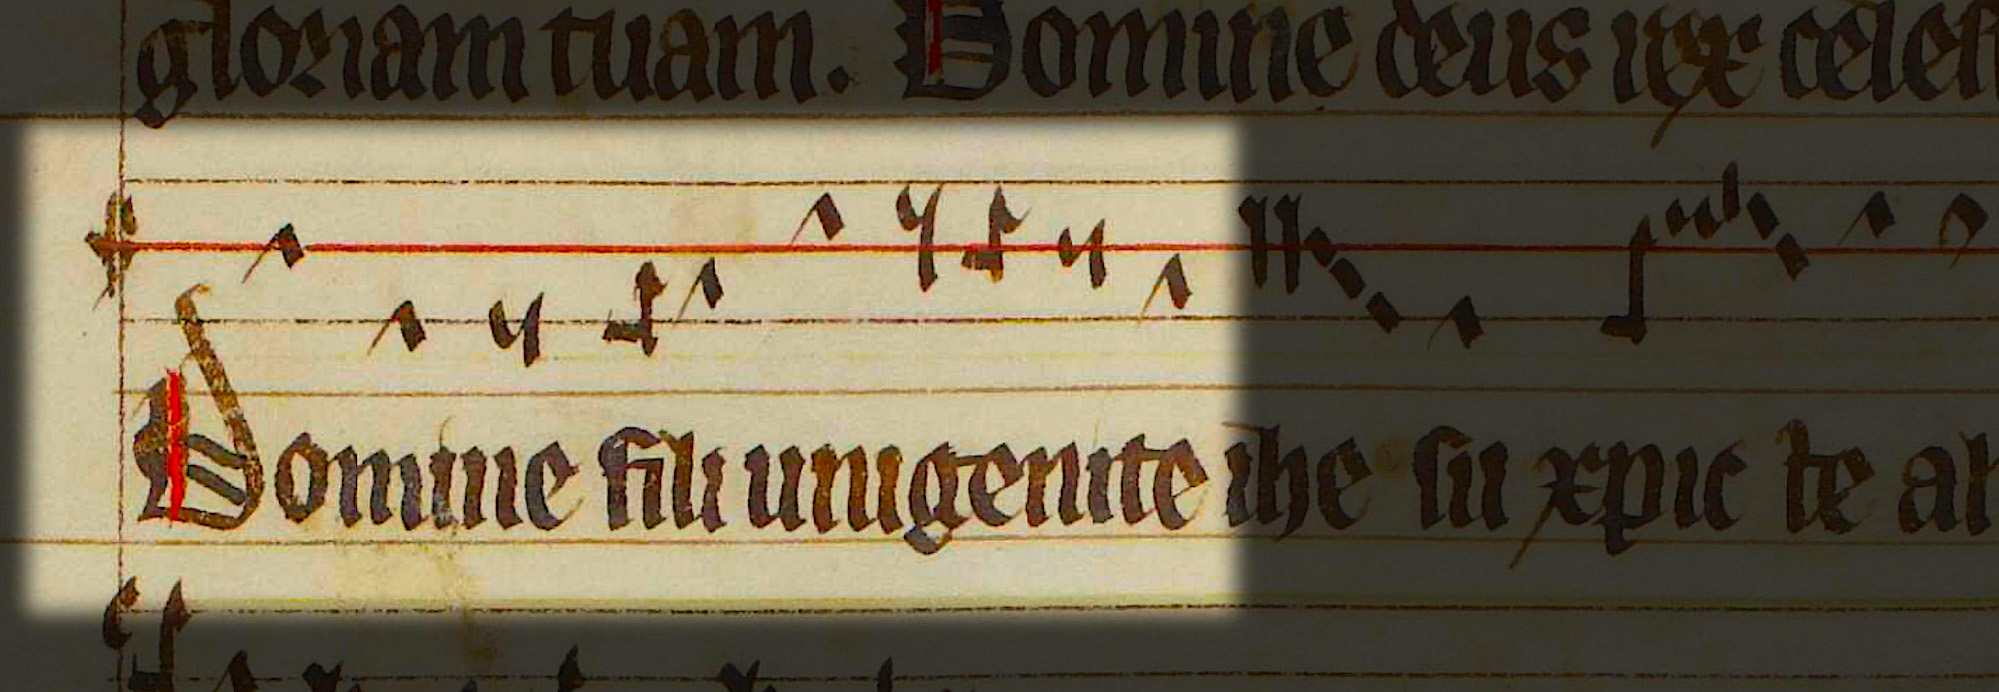 gloriam tuam. Domine deus rex celes
Domine fili unigenite ihe su xpic te al